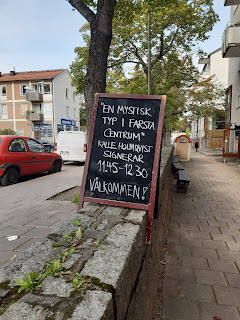 "EN MYSTISK
TYP I FARSTA
CENTRUM"
KALLE HOLMQVIST
SIGNERAR
11.45-12.30
VÄLKOMMEN!